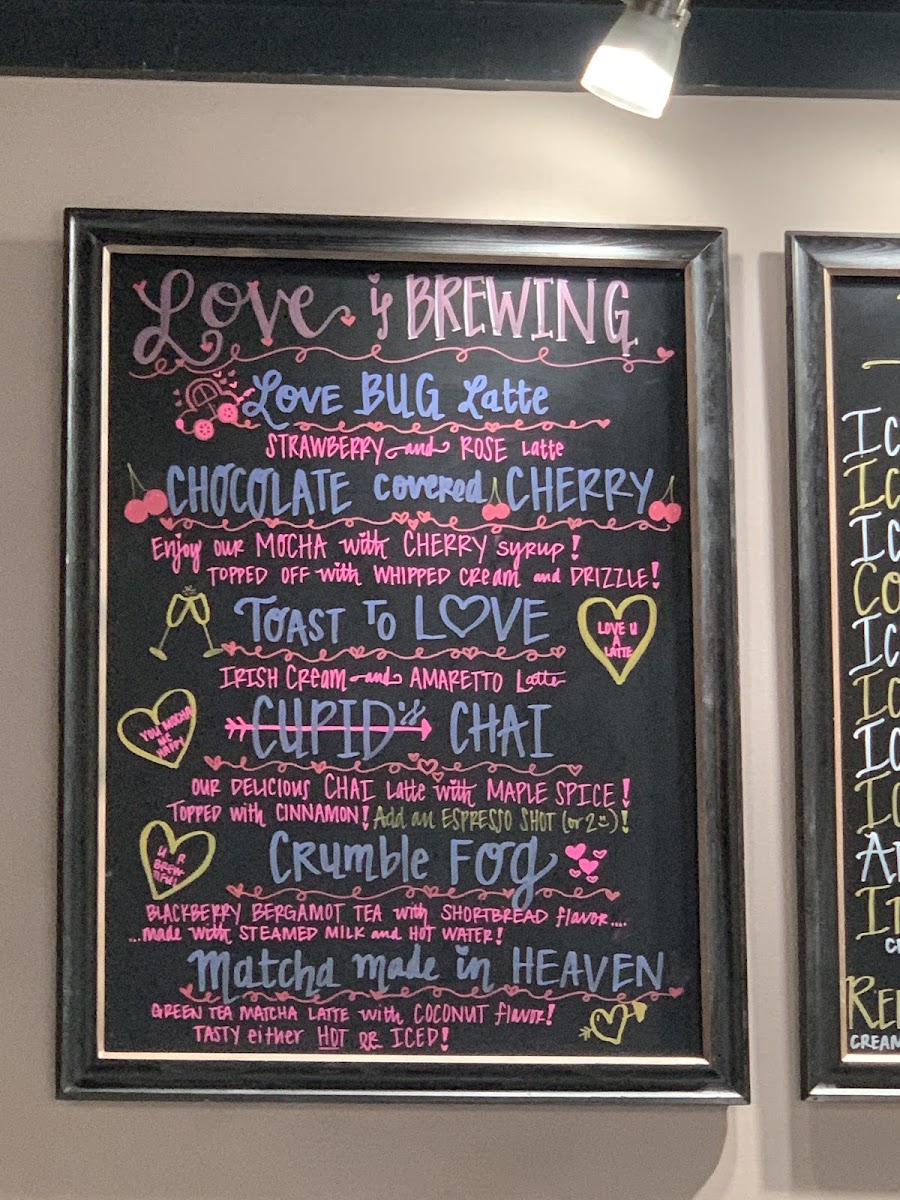 Love is BREWING
Love BUG Latte
STRAWBERRY and ROSE Latte
CHOCOLATE covered CHERRY
Enjoy our MOCHA with CHERRY syrup!
TOPPED OFF with WHIPPED Cream and DRIZZLE!
TOAST TO LOVE
LOVE U
A
LATTE
IRISH Cream and AMARETTO Latte
YOU MOCHA
ME
HAPPY
CUPID's CHAI
OUR DELICIOUS CHAI Latte with MAPLE SPICE!
TOPPED with CINNAMON! Add an ESPRESSO SHOT (or 2)!
U R
BREW-
TIFUL
Crumble FOG
BLACKBERRY BERGAMOT TEA with SHORTBREAD flavor....
...made with STEAMED MILK and HOT WATER!
Matcha made in HEAVEN
GREEN TEA MATCHA LATTE with COCONUT flavor!
TASTY either HOT OR ICED!